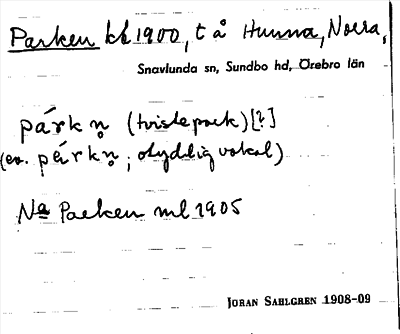 Parken kk 1900, t å Hunna, Norra,
Snavlunda sn, Sundbo hd, Örebro län
párkn̥ (tvistepark) [?]
(ev. pɛ́rkn̥; otydlig vokal)
Na Parken ml 1905
JÖRAN SAHLGREN 1908-09